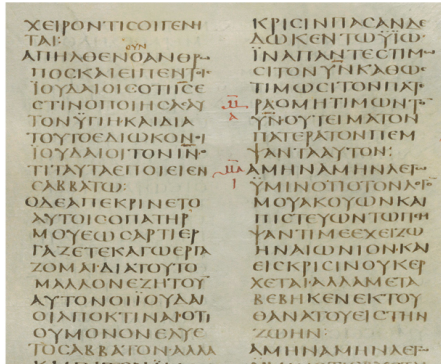 ΧΕΙΡΟΝΤΙϹΟΙΓΕΝΗ
ΤΑΙ:
ΟΥΝ
ΑΠΗΛΘΕΝΟΑΝΘΡΩ
ΠΟϹΚΑΙΕΙΠΕΝΤΟΙ
ΪΟΥΔΑΙΟΙϹΟΤΙΙ̅Ϲ̅Ε
ϹΤΙΝΟΠΟΙΗϹΑϹΑΥ
ΤΟΝΫΓΙΗΚΑΙΔΙΑ
ΤΟΥΤΟΕΔΙΩΚΟΝΟΙ
ΪΟΥΔΑΙΟΙΤΟΝΙ̅Ν̅Ο
ΤΙΤΑΥΤΑΕΠΟΙΕΙΕΝ
ϹΑΒΒΑΤΩ:
ΟΔΕΑΠΕΚΡΙΝΕΤΟ
ΑΥΤΟΙϹΟΠΑΤΗΡ
ΜΟΥΕΩϹΑΡΤΙΕΡ
ΓΑΖΕΤΕΚΑΓΩΕΡΓΑ
ΖΟΜΑΙ·ΔΙΑΤΟΥΤΟ
ΜΑΛΛΟΝΕΖΗΤΟΥ
ΑΥΤΟΝΟΙΪΟΥΔΑΙ
ΟΙΑΠΟΚΤΙΝΑΙΟΤΙ
ΟΥΜΟΝΟΝΕΛΥΕ
ΤΟϹΑΒΒΑΤΟΝΑΛΛΑ
ΚΡΙϹΙΝΠΑϹΑΝΔΕ
ΔΩΚΕΝΤΩΫΪΩ
ΪΝΑΠΑΝΤΕϹΤΙΜ
ϹΙΤΟΝΥ̅Ν̅ΚΑΘΩϹ
ΤΙΜΩϹΙΤΟΝΠΑΤ
ΡΑΟΜΗΤΙΜΩΝΤΟ
Υ̅Ν̅ΟΥΤΕΙΜΑΤΟΝ
ΠΑΤΕΡΑΤΟΝΠΕΜ
ΨΑΝΤΑΑΥΤΟΝ:
ΑΜΗΝΑΜΗΝΛΕΓΩ
ΫΜΙΝΟΤΙΟΤΟΝΛΟΓΟ
ΜΟΥΑΚΟΥΩΝΚΑΙ
ΠΙϹΤΕΥΩΝΤΩΠΕΜ
ΨΑΝΤΙΜΕΕΧΕΙΖΩ
ΗΝΑΙΩΝΙΟΝ·ΚΑΙ
ΕΙϹΚΡΙϹΙΝΟΥΚΕΡ
ΧΕΤΑΙ·ΑΛΛΑΜΕΤΑ
ΒΕΒΗΚΕΝΕΚΤΟΥ
ΘΑΝΑΤΟΥΕΙϹΤΗΝ
ΖΩΗΝ:
ΑΜΗΝΑΜΗΝΛΕΓΩ